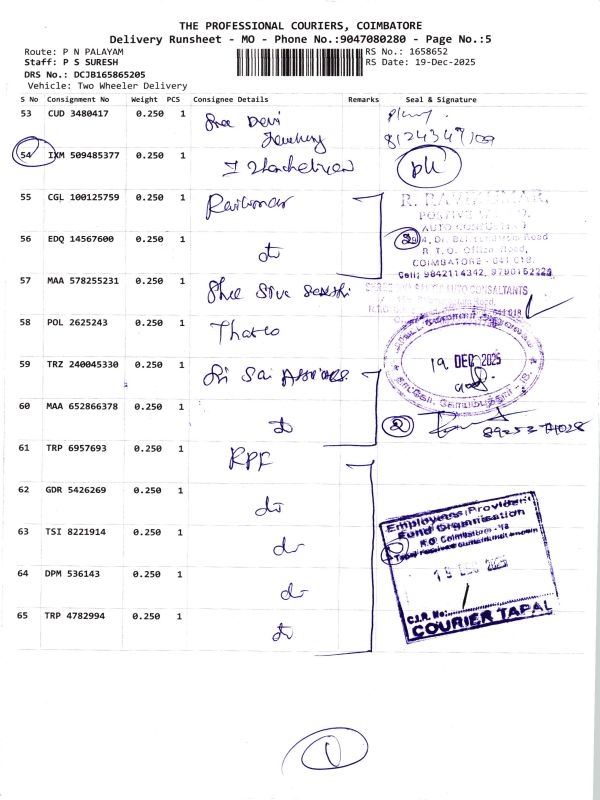 THE PROFESSIONAL COURIERS, COIMBATORE
Delivery Runsheet - MO - Phone No.:9047080280 - Page No.:5
Route: P N PALAYAM
RS No.: 1658652
Staff: P S SURESH
RS Date: 19-Dec-2025
DRS No.: DCJB165865205
Vehicle: Two Wheeler Delivery
S No Consignment No Weight PCS Consignee Details Remarks Seal & Signature
53 CUD 3480417 0.250 1 Sree Devi
54 IXM 509485377 0.250 1
55 CGL 100125759 0.250 1 Ravikumar
R. RAVIKUMAR,
AUTO CONSULTANT
56 EDQ 14567600 0.250 1 do
2
R. T. O. Office Road,
COIMBATORE - 641 018.
Cell: 9842114342, 9790152225
57 MAA 578255231 0.250 1 Shree Siva Sakthi
AUTO CONSALTANTS
58 POL 2625243 0.250 1
59 TRZ 240045330 0.250 1 Sri Sai
19 DEC 2025
60 MAA 652866378 0.250 1 do
2
61 TRP 6957693 0.250 1 RPF
62 GDR 5426269 0.250 1 do
Employees' Provident
Fund Organisation
R.O. Coimbatore - 18
63 TSI 8221914 0.250 1 do
19 DEC 2025
64 DPM 536143 0.250 1 do
C.I.R. No:
COURIER TAPAL
65 TRP 4782994 0.250 1 do
1